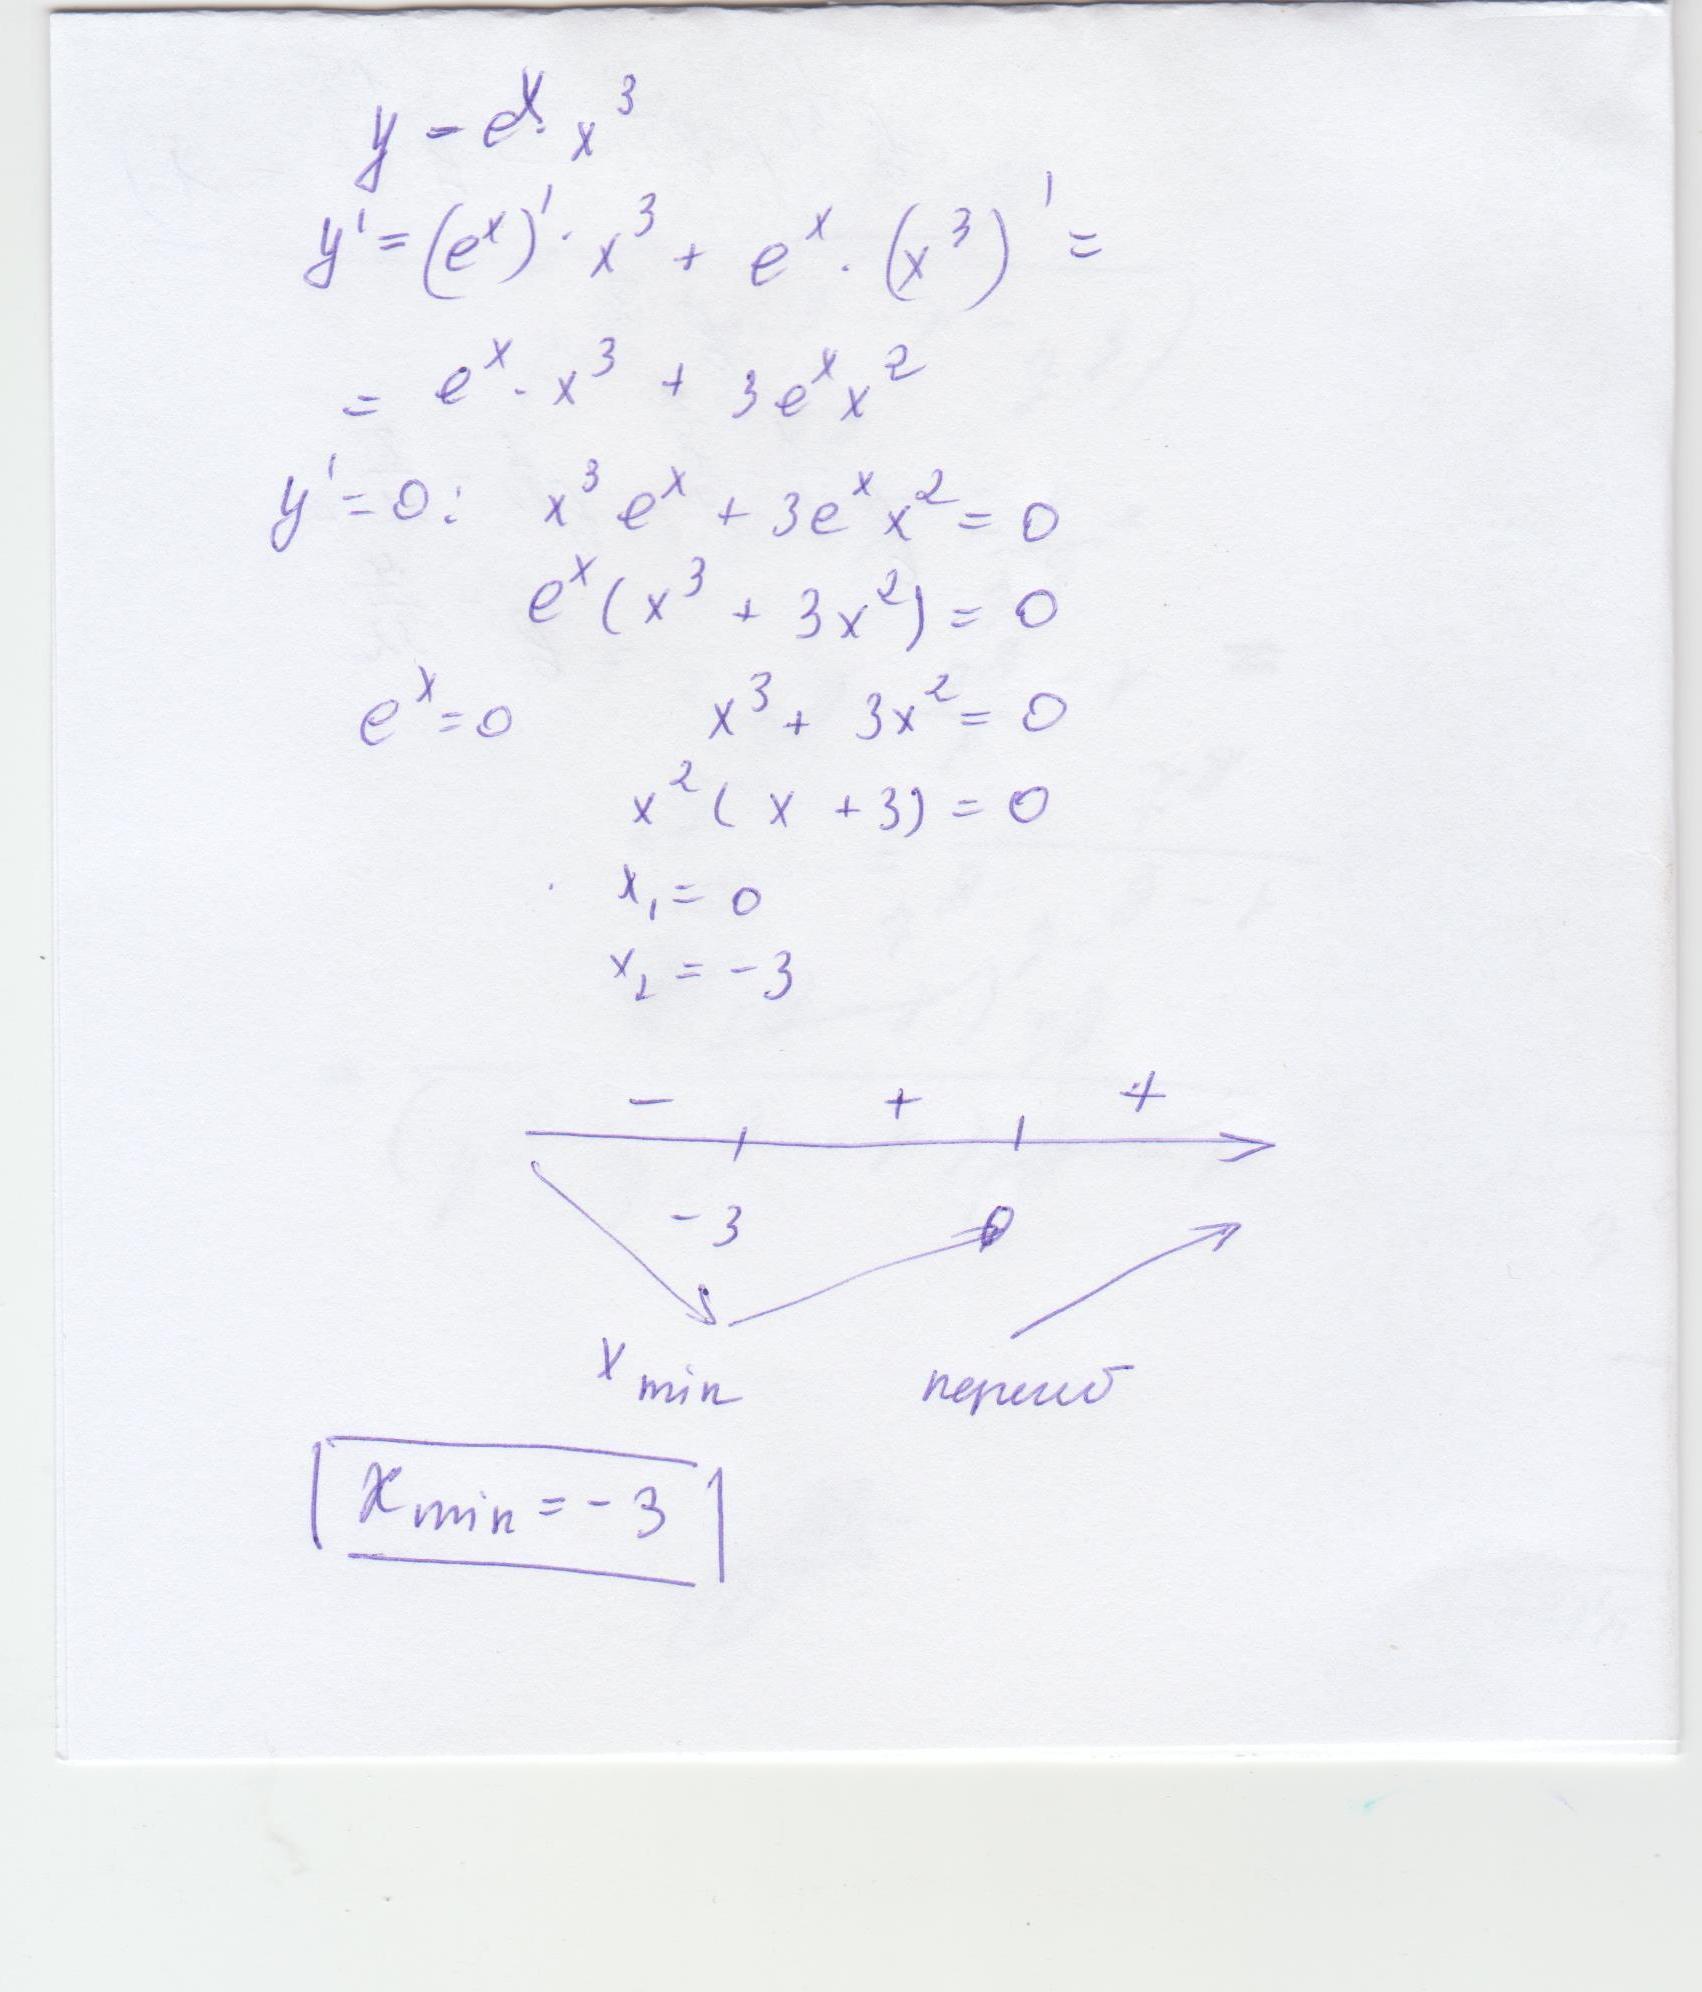 y = eˣ · x³
y' = (eˣ)' · x³ + eˣ · (x³)' =
= eˣ · x³ + 3eˣx²
y' = 0 : x³eˣ + 3eˣx² = 0
eˣ(x³ + 3x²) = 0
eˣ = 0 x³ + 3x² = 0
x²(x + 3) = 0
x₁ = 0
x₂ = -3
- + +
-3 0
x min перегиб
x min = -3